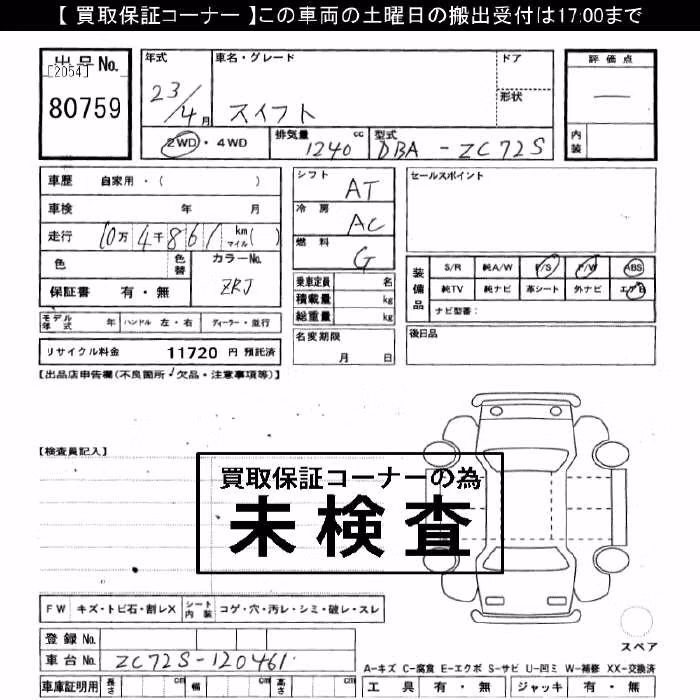 【 買取保証コーナー 】この車両の土曜日の搬出受付は17:00まで
出品No.
[2054]
80759
年式
23/4月
車名・グレード
スイフト
ドア
形状
評価点
―
内装
2WD・4WD
排気量 cc
1240
型式
DBA - ZC72S
車歴 自家用・( )
車検 年 月
走行 10万4千861 km マイル( )
色
色替
カラーNo.
ZRJ
保証書 有・無
シフト
AT
冷房
AC
燃料
G
乗車定員 名
積載量 kg
総重量 kg
セールスポイント
装備品
S/R 純A/W P/S P/W ABS
純TV 純ナビ 革シート 外ナビ エアB
ナビ型番:
モデル年式 年 ハンドル 左・右 ディーラー・並行
名変期限
月 日
後日品
リサイクル料金 11720 円 預託済
【出品店申告欄(不良箇所・欠品・注意事項等)】
【検査員記入】
買取保証コーナーの為
未検査
FW キズ・トビ石・割レX
シート内装 コゲ・穴・汚レ・シミ・破レ・スレ
スペア
登録No.
車台No. ZC72S-120461
A-キズ C-腐食 E-エクボ S-サビ U-凹ミ W-補修 XX-交換済
車庫証明用 長さ cm 幅 cm 高さ cm
工具 有・無 ジャッキ 有・無